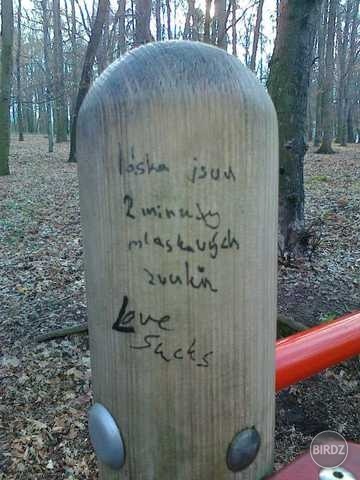 láska jsou
2 minuty
mlaskavých
zvuků
Love
Sucks
BIRDZ